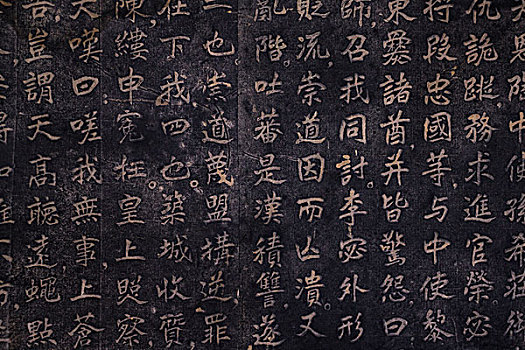 仇，詭蹤務求進官榮。宓
將段忠國等与中使黎
東爨諸酋，并皆驚怨曰
師，召我同討。李宓外形
貶流，崇道因而亡潰。又
亂階。吐蕃是漢積讐，遂
二也。崇道蔑盟構逆，罪
在下，我四也。築城收質，
陳，縷申冤枉。皇上照察，
天嘆曰：嗟我無事，上蒼
吾豈謂天高聽遠，蠅點